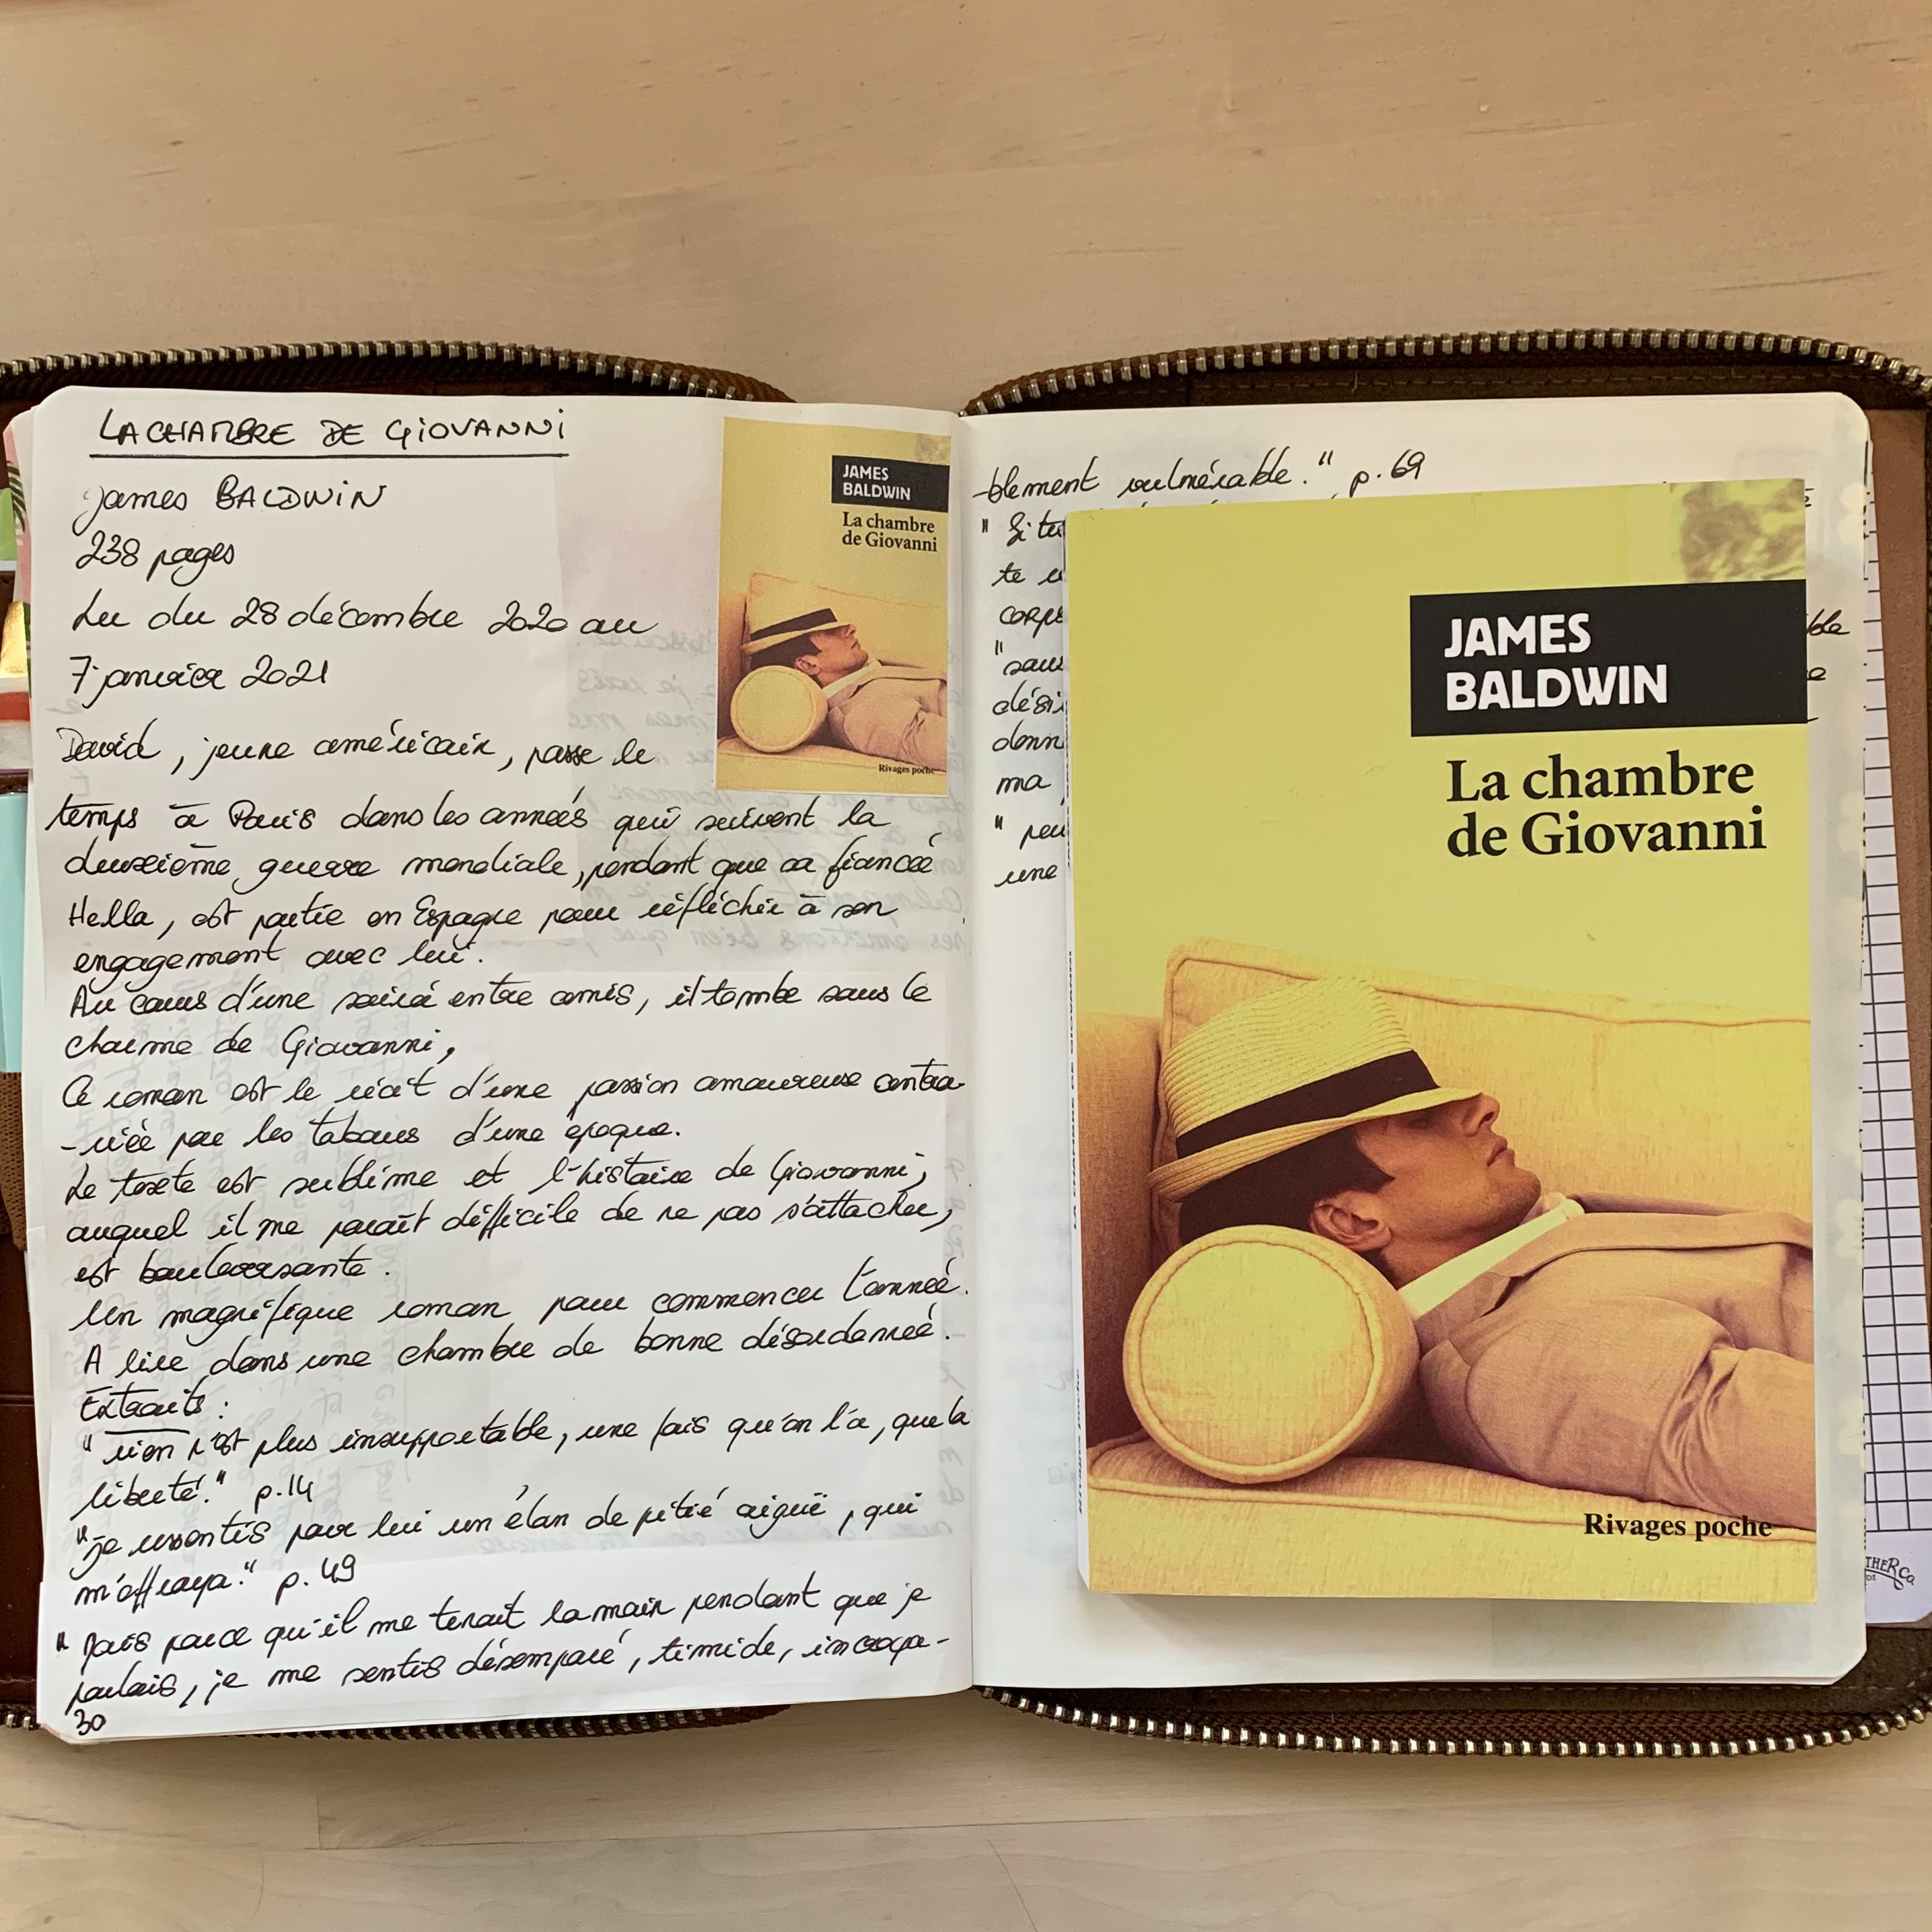 LA CHAMBRE DE GIOVANNI
James BALDWIN
238 pages
Lu du 28 décembre 2020 au
7 janvier 2021
David, jeune américain, passe le
temps à Paris dans les années qui suivent la
deuxième guerre mondiale, pendant que sa fiancée
Hella, est partie en Espagne pour réfléchir à son
engagement avec lui.
Au cours d'une soirée entre amis, il tombe sous le
charme de Giovanni,
Ce roman est le récit d'une passion amoureuse contra-
-riée par les tabous d'une époque.
Le texte est sublime et l'histoire de Giovanni,
auquel il me paraît difficile de ne pas s'attacher,
est bouleversante.
Un magnifique roman pour commencer l'année.
A lire dans une chambre de bonne désordonnée.
Extraits :
"rien n'est plus insupportable, une fois qu'on l'a, que la
liberté." p.14
"je ressentis pour lui un élan de pitié aiguë, qui
m'effraya." p. 49
"Mais parce qu'il me tenait la main pendant que je
parlais, je me sentis désemparé, timide, incroya-
30
JAMES
BALDWIN
La chambre
de Giovanni
Rivages poche
-blement vulnérable." p. 69
" Si tu
te
corps
"sans
ble
dési
donn
ma
" peu
une
JAMES
BALDWIN
La chambre
de Giovanni
Rivages poche
THER Co.